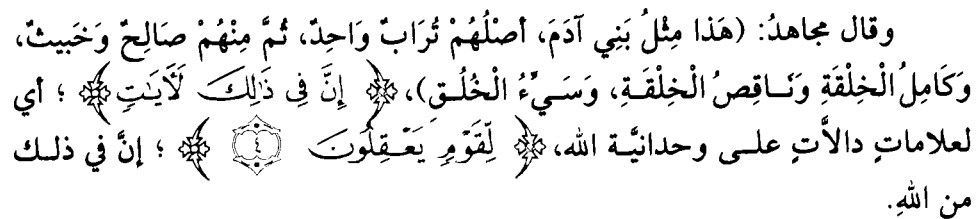 وقال مجاهدُ: (هَذا مِثْلُ بَنِي آدَمَ، أصْلُهُمْ تُرَابٌ وَاحِدٌ، ثُمَّ مِنْهُمْ صَالِحٌ وَخَبِيثٌ،
وَكَامِلُ الْخِلْقَةِ وَنَاقِصُ الْخِلْقَةِ، وَسَيِّءُ الْخُلُقِ)، ﴿ إِنَّ فِى ذَٰلِكَ لَأَيَٰتٍ ﴾ ؛ أي
لعلاماتٍ دالاَّتٍ على وحدانيَّة الله، ﴿ لِّقَوْمٍ يَعْقِلُونَ ٤ ﴾ ؛ إنَّ في ذلك
من اللهِ.